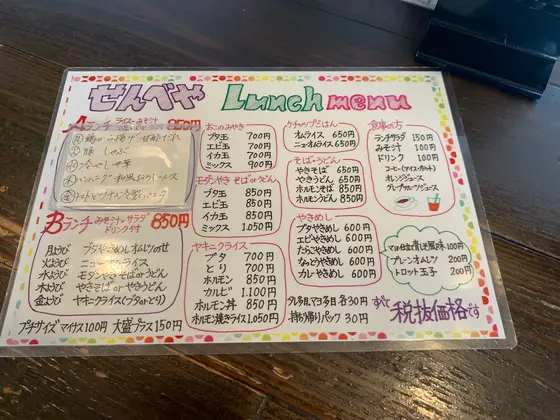 せんべや Lunch menu
Aランチ ライス・みそ汁 850円
月
火
水 冷やし中華
木
金
Bランチ みそ汁、サラダ ドリンク付 850円
月ようび ブタやきめしオムソのせ
火ようび ニューオムライス
水ようび モダンやきそばorうどん
木ようび やきそばorやきうどん
金ようび ヤキニクライス(ブタorとり)
プチサイズ マイナス100円 大盛プラス150円
おこのみやき
ブタ玉 700円
エビ玉 700円
イカ玉 700円
ミックス 900円
モダンやき そばorうどん
ブタ玉 850円
エビ玉 850円
イカ玉 850円
ミックス 1.050円
ヤキニクライス
ブタ 700円
とり 700円
ホルモン 850円
カルビ 1.100円
ホルモン丼 850円
ホルモン焼きライス 1.050円
ケチャップごはん
オムライス 650円
ニューオムライス 650円
そば・うどん
やきそば 650円
やきうどん 650円
ホルモンそば 850円
ホルモンうどん 850円
やきめし
ブタやきめし 600円
エビやきめし 600円
たらこやきめし 600円
なっとうやきめし 600円
カレーやきめし 600円
タレ多目、マヨ多目 各30円
持ち帰りパック 30円
食事の方
ランチサラダ 150円
みそ汁 100円
ドリンク 100円
コーヒー(アイス・ホット)
オレンジジュース
グレープフルーツジュース
100円
プレーンオムレツ 200円
トロット玉子 200円
すべて税抜価格です